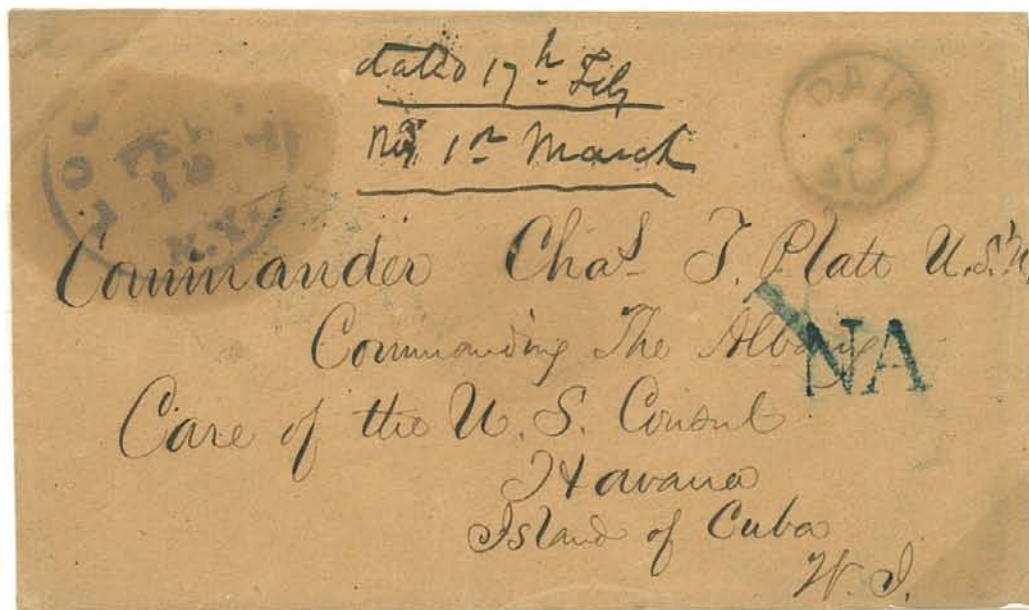 dated 17th Feby
1st March
PAID
N.Y.
Commander Chas. T. Platt U.S.N
Commanding The Albany
NA
Care of the U.S. Consul
Havana
Island of Cuba
W.I.